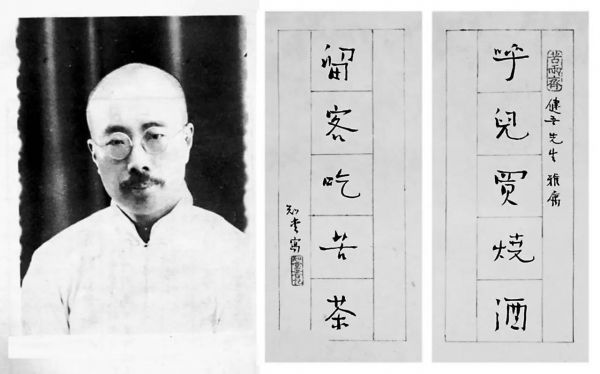 苦雨齋
健吾先生 雅屬
呼兒買燒酒
留客吃苦茶
知堂寫
知堂書記